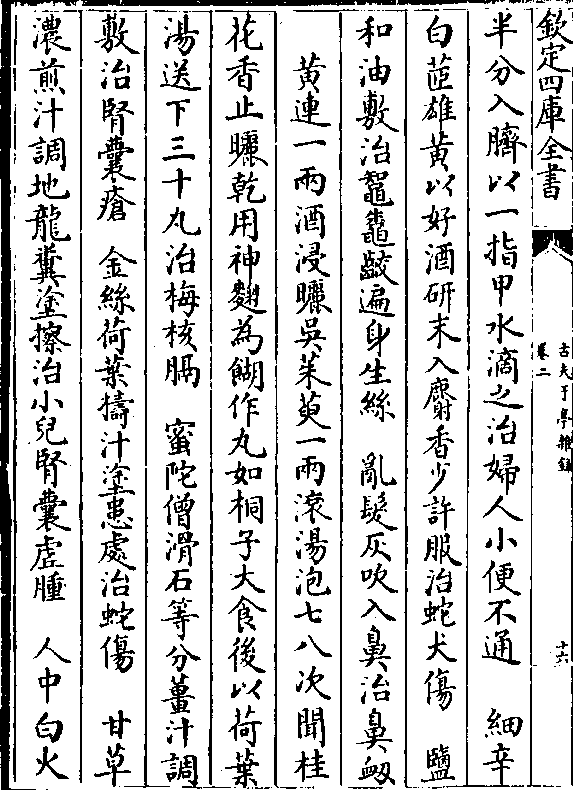 欽定四庫全書
古夫于亭雜錄
卷二
十六
半分入臍以一指甲水滴之治婦人小便不通　細辛
白芷雄黄以好酒研末入麝香少許服治蛇犬傷　鹽
和油敷治鼅鼄齩遍身生絲　亂髮灰吹入鼻治鼻衂
黄連一兩酒浸曬吳茱萸一兩滾湯泡七八次聞桂
花香止曬乾用神麴為餬作丸如桐子大食後以荷葉
湯送下三十丸治梅核膈　蜜陀僧滑石等分薑汁調
敷治腎囊瘡　金絲荷葉擣汁塗患處治蛇傷　甘草
濃煎汁調地龍糞塗擦治小兒腎囊虛腫　人中白火